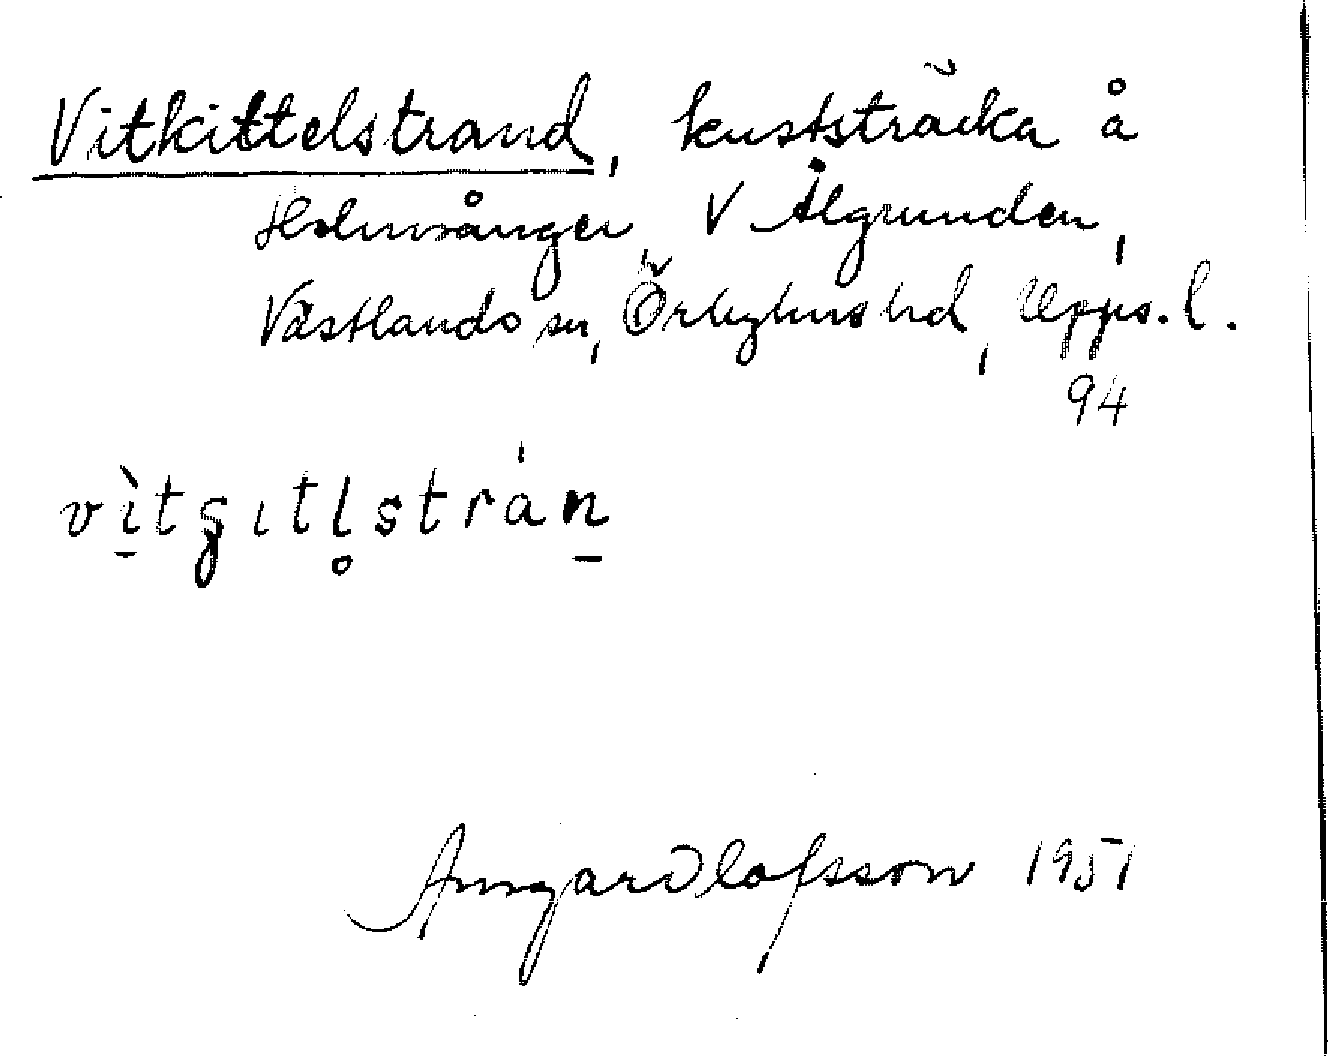 Vitkittelstrand, kuststräcka å
Holmsånger V Ålgrunden,
Västlands sn, Örbyhus hd, Upps. l.
94
vì̱tgıtl̥strán̠
Ansgar Olofsson 1951